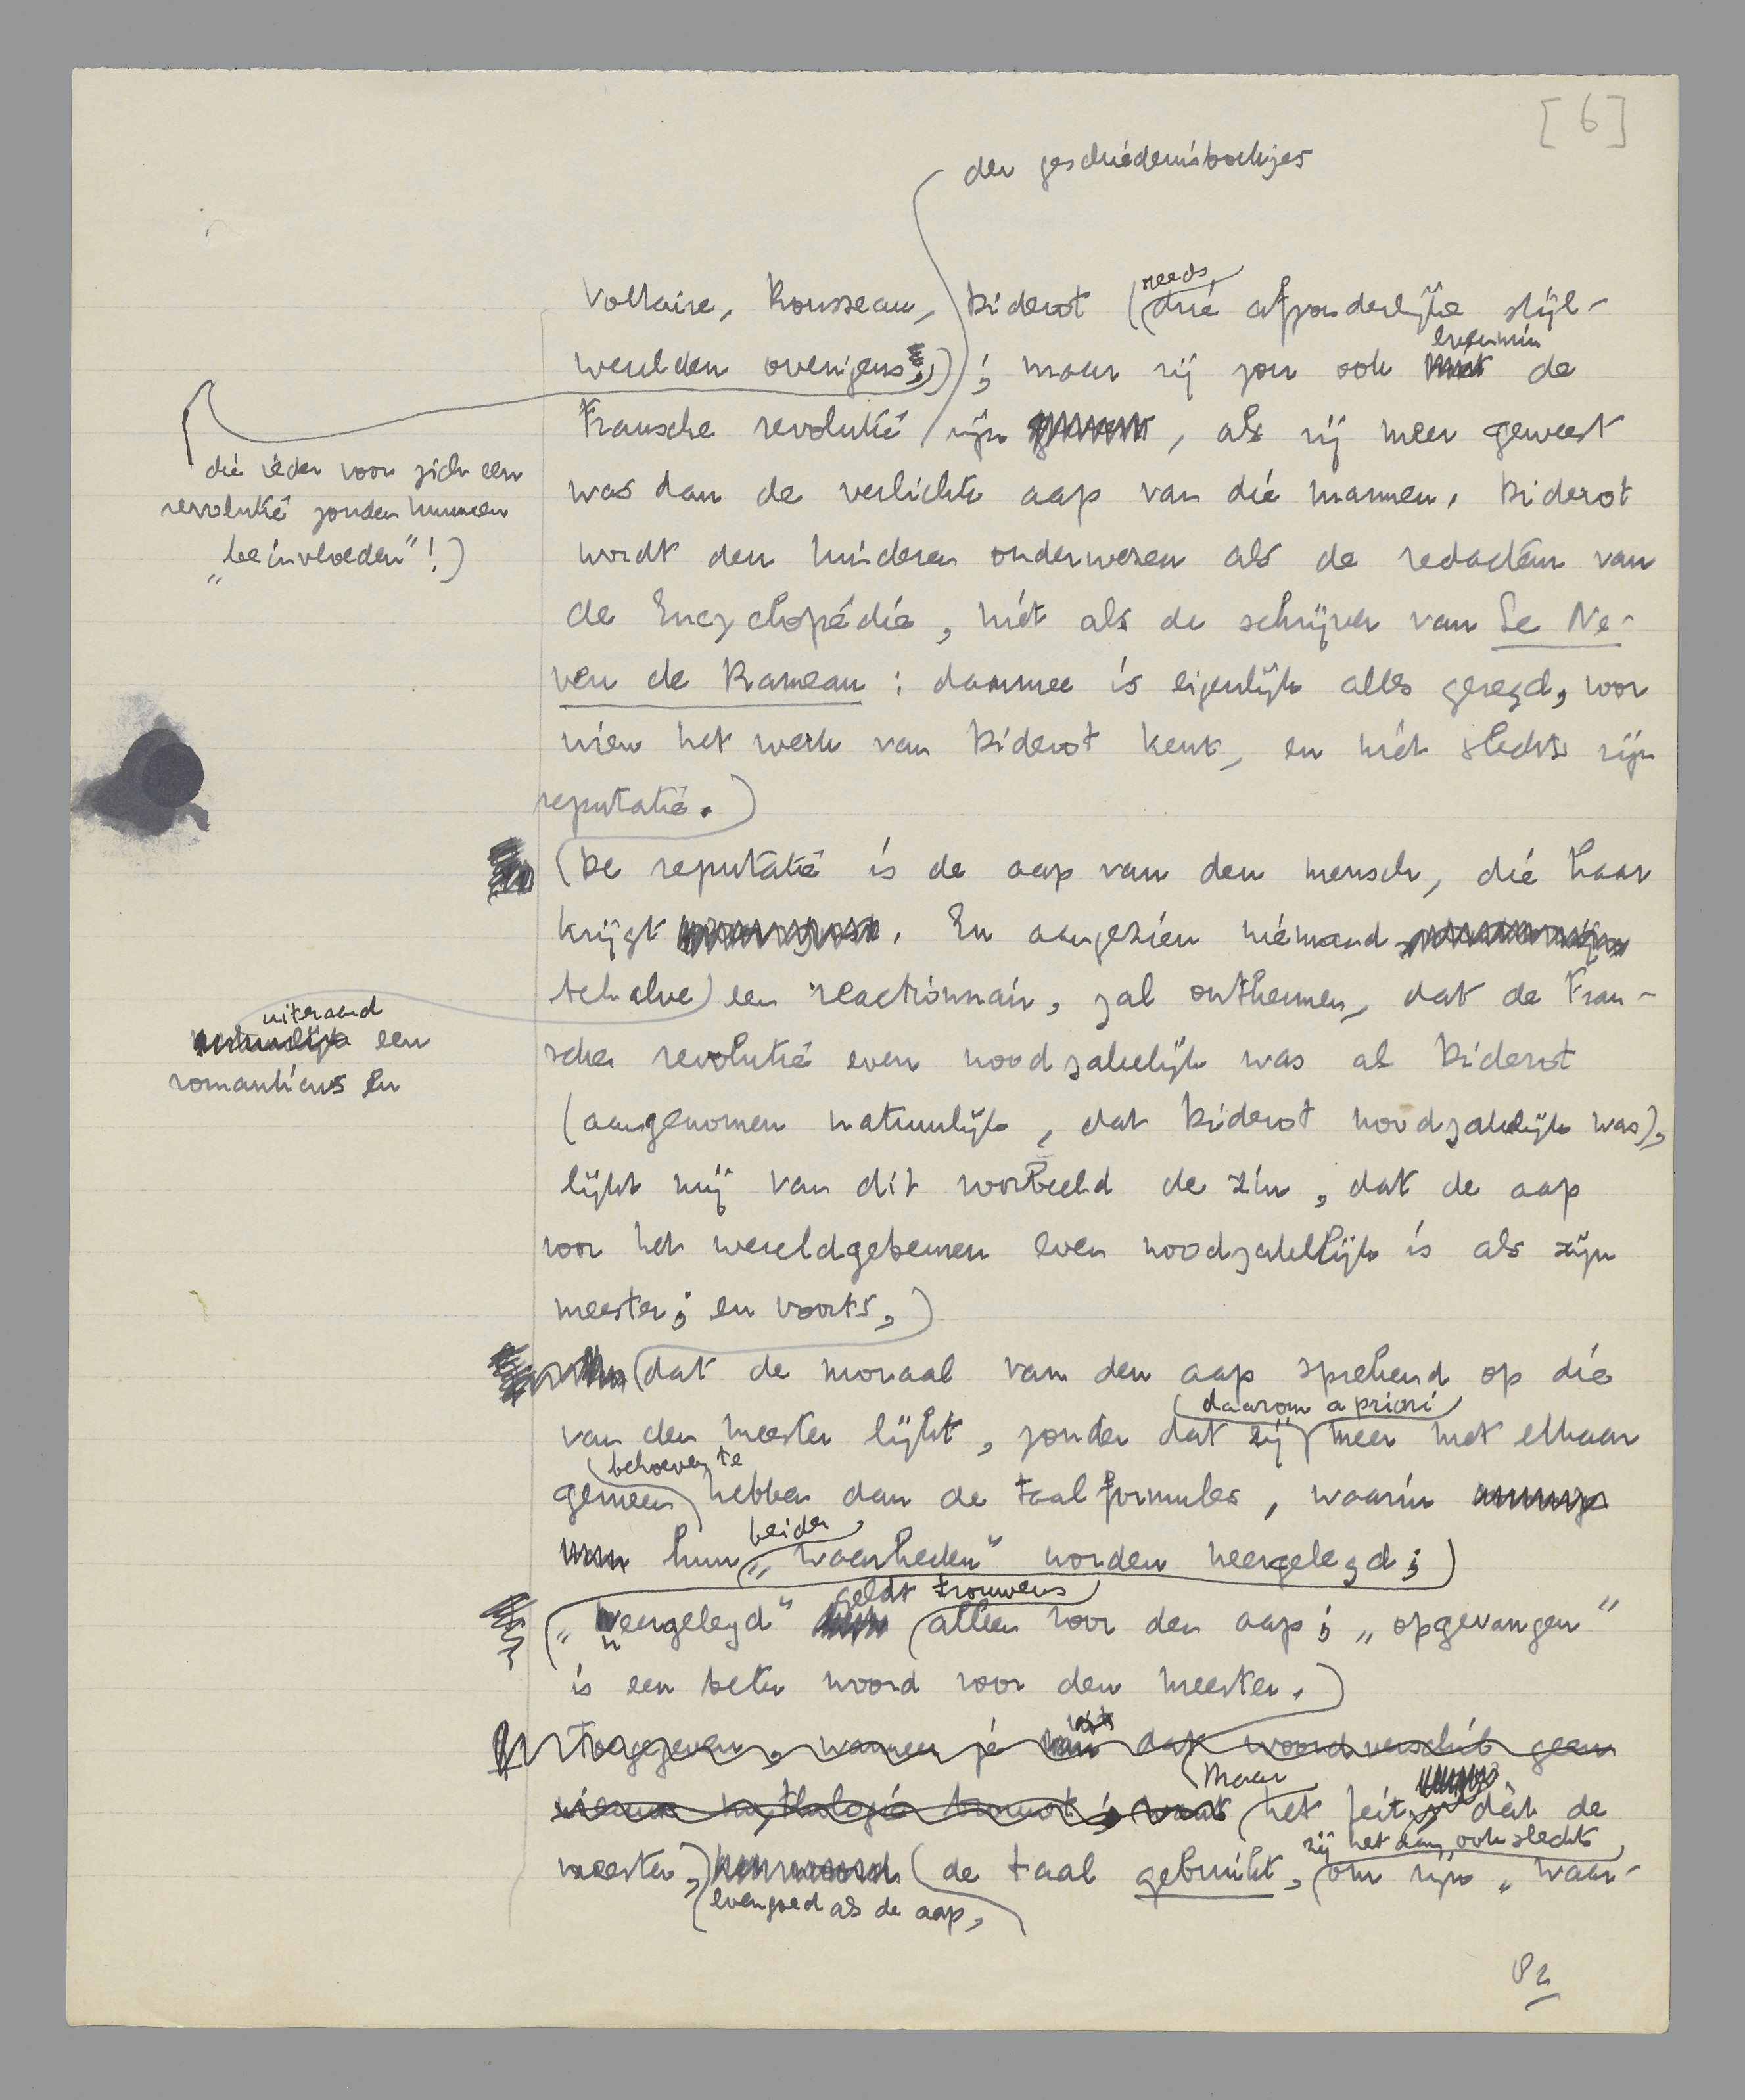 [6]
der geschiedenisboekjes
Voltaire, Rousseau, Diderot (reeds drie afzonderlijke stijl-
werelden overigens,) ; maar zij zou ook evenmin de
die ieder voor zich een
revolutie zouden kunnen
„beïnvloeden"!)
Fransche revolutie zijn , als zij meer geweest
was dan de verlichte aap van die mannen. Diderot
wordt den kinderen onderwezen als de redacteur van
de Encyclopédie, niet als de schrijver van Le Ne-
veu de Rameau : daarmee is eigenlijk alles gezegd, voor
wien het werk van Diderot kent, en niet slechts zijn
reputatie.
De reputatie is de aap van den mensch, die haar
krijgt . En aangezien niemand
behalve) een reactionnair, zal ontkennen, dat de Fran-
uiteraard
een
romanticus en
sche revolutie even noodzakelijk was als Diderot
(aangenomen natuurlijk, dat Diderot noodzakelijk was),
lijkt mij van dit voorbeeld de zin, dat de aap
voor het wereldgebeuren even noodzakelijk is als zijn
meester; en voorts,
dat de moraal van den aap sprekend op die
daarom a priori
van den meester lijkt, zonder dat zij meer met elkaar
behoeven te
gemeen hebben dan de taalformules, waarin
beider
hun „waarheden" worden neergelegd;
geldt trouwens
„neergelegd" alleen voor den aap; „opgevangen"
is een beter woord voor den meester.
Toegegeven, wanneer je uit dat woordverschil geen
nieuwe mythologie brouwt; want
Maar
het feit, dat de
zij het dan ook slechts
meester, de taal gebruikt, om zijn „waar-
evengoed als de aap,